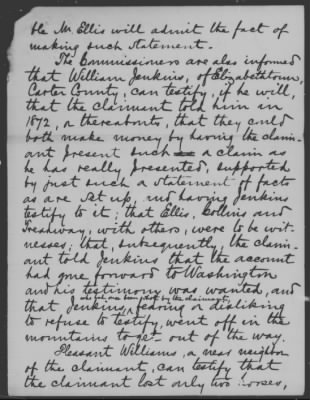 ble Mr Ellis will admit the fact of
making such statement.
The Commissioners are also informed
that William Jenkins, of Elizabethtown,
Carter County, can testify, if he will,
that the claimant told him in
1872, or thereabouts, that they could
both make money by having the claim-
ant present such a claim as
he has really presented, supported
by just such a statement of facts
as are set up, and having Jenkins
testify to it; that Ellis, Collins and
Treadway, with others, were to be wit-
nesses; that, subsequently, the claim-
ant told Jenkins that the account
had gone forward to Washington
and his testimony was wanted, and
by the claimant,
that Jenkins, fearing or disliking
to refuse to testify, went off in the
mountains to get out of the way.
Pleasant Williams, a near neighbor
of the claimant, can testify that
the claimant lost only two horses,